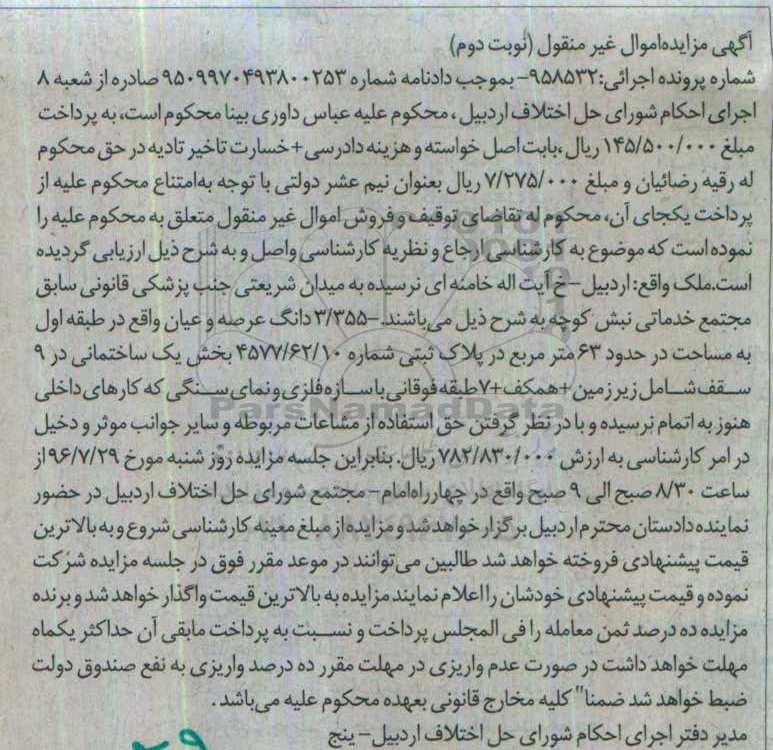 آگهی مزایده‌اموال غیر منقول (نوبت دوم)
شماره پرونده اجرائی:۹۵۸۵۳۲- بموجب دادنامه شماره ۹۵۰۹۹۷۰۴۹۳۸۰۰۲۵۳ صادره از شعبه ۸
اجرای احکام شورای حل اختلاف اردبیل، محکوم علیه عباس داوری بینا محکوم است، به پرداخت
مبلغ ۱۴۵/۵۰۰/۰۰۰ ریال ،بابت اصل خواسته و هزینه دادرسی + خسارت تاخیر تادیه در حق محکوم
له رقیه رضائیان و مبلغ ۷/۲۷۵/۰۰۰ ریال بعنوان نیم عشر دولتی با توجه به‌امتناع محکوم علیه از
پرداخت یکجای آن، محکوم له تقاضای توقیف و فروش اموال غیر منقول متعلق به محکوم علیه را
نموده است که موضوع به کارشناسی ارجاع و نظریه کارشناسی واصل و به شرح ذیل ارزیابی گردیده
است.ملک واقع: اردبیل- خ آیت اله خامنه ای نرسیده به میدان شریعتی جنب پزشکی قانونی سابق
مجتمع خدماتی نبش کوچه به شرح ذیل می‌باشند.-۳/۳۵۵ دانگ عرصه و عیان واقع در طبقه اول
به مساحت در حدود ۶۳ متر مربع در پلاک ثبتی شماره ۴۵۷۷/۶۲/۱۰ بخش یک ساختمانی در ۹
سقف شامل زیرزمین + همکف +۷ طبقه فوقانی با سازه فلزی و نمای سنگی که کارهای داخلی
هنوز به اتمام نرسیده و با در نظر گرفتن حق استفاده از مشاعات مربوطه و سایر جوانب موثر و دخیل
در امر کارشناسی به ارزش ۷۸۲/۸۳۰/۰۰۰ ریال. بنابراین جلسه مزایده روز شنبه مورخ ۹۶/۷/۲۹ از
ساعت ۸/۳۰ صبح الی ۹ صبح واقع در چهارراه‌امام- مجتمع شورای حل اختلاف اردبیل در حضور
نماینده دادستان محترم اردبیل برگزار خواهد شد و مزایده از مبلغ معینه کارشناسی شروع و به بالاترین
قیمت پیشنهادی فروخته خواهد شد طالبین می‌توانند در موعد مقرر فوق در جلسه مزایده شرکت
نموده و قیمت پیشنهادی خودشان را اعلام نمایند مزایده به بالاترین قیمت واگذار خواهد شد و برنده
مزایده ده درصد ثمن معامله را فی المجلس پرداخت و نسبت به پرداخت مابقی آن حداکثر یکماه
مهلت خواهد داشت در صورت عدم واریزی در مهلت مقرر ده درصد واریزی به نفع صندوق دولت
ضبط خواهد شد ضمنا" کلیه مخارج قانونی بعهده محکوم علیه می‌باشد .
مدیر دفتر اجرای احکام شورای حل اختلاف اردبیل- ینج
ParsNamadData